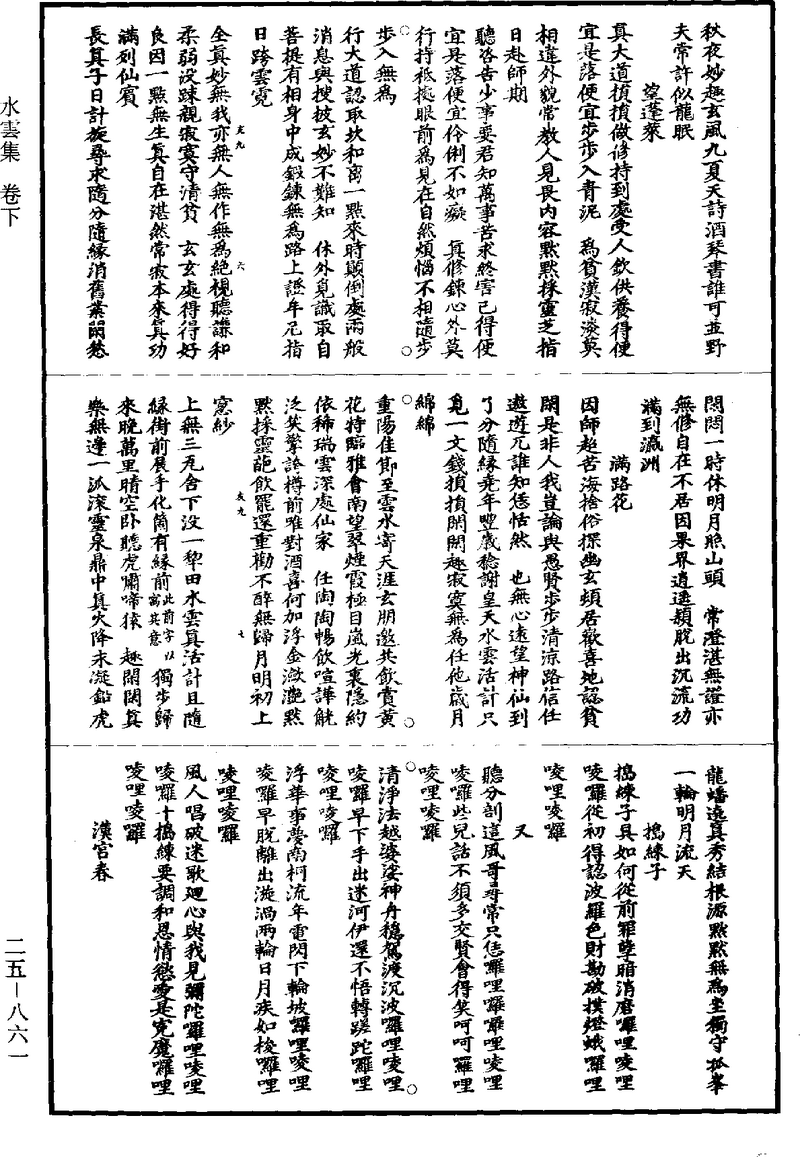 水雲集　卷下
秋夜妙趣玄風九夏天詩酒琴書誰可並野
夫常許似龍眠
望蓬萊
真大道損損做修持到處受人欽供養得便
宜是落便宜步步入青泥　為貧漢寂淡莫
相違外貌常教人見畏內容默默採靈芝指
日赴師期
聽咨告少事要君知萬事苦求終害己得便
宜是落便宜伶俐不如癡　真修鍊心外莫
行持祗擬眼前為見在自然煩惱不相隨步
步入無為
行大道認取坎和离一點來時顛倒處兩般
消息與搜披玄妙不難知　休外覓識取自
菩提有相身中成鍛鍊無為路上證牟尼指
日跨雲霓
全真妙無我亦無人無作無為絕視聽謙和
柔弱沒踈親寂寞守清貧　玄玄處得得好
良因一點無生真自在湛然常寂本來真功
滿列仙賓
長真子日計旋尋求隨分隨緣消舊業閑愁
悶悶一時休明月照山頭　常澄湛無證亦
無修自在不居因果界逍遙穎脫出沉流功
滿到瀛洲
滿路花
因師超苦海捨俗探幽玄頻居歡喜地認貧
閑是非人我豈論與愚賢步步清涼路信任
遨遊兀誰知恁恬然　也無心遠望神仙到
了分隨緣堯年豐歲稔謝皇天水雲活計只
覓一文錢損損閑閑趣寂寞無為任他歲月
綿綿
重陽佳節至雲水寄天涯玄朋邀共飲賞黃
花特臨雅會南望翠煙霞極目嵐光裏隱約
依稀瑞雲深處仙家　任陶陶暢飲喧譁觥
泛笑擎誇樽前唯對酒喜何加浮金瀲灔默
默採靈龍飲罷還重勸不醉無歸月明初上
窻紗
上無三瓦舍下沒一犂田水雲真活計且隨
緣街前展手化箇有緣前此前字以寓其意獨步歸
來晚萬里晴空卧聽虎嘯啼猿　趣閑閑真
樂無邊一泒滾靈泉鼎中真火降未凝鉛虎
龍蟠遶真秀結根源默默無為坐獨守孤峯
一輪明月流天
搗練子
搗練子具如何從前罪孽暗消磨囉哩唛哩
唛囉從初得認波羅色財勘破撲燈蛾囉哩
唛哩唛囉
又
聽分剖這風哥尋常只恁囉哩囉囉哩唛哩
唛囉些兒話不須多交賢會得笑呵呵囉哩
唛哩唛囉
清淨法越婆娑神舟穩駕渡沉波囉哩唛哩
唛囉早下手出迷河伊還不悟轉蹉跎囉哩
唛哩唛囉
浮華事夢南柯流年電閃下輪坡囉哩唛哩
唛囉早脫離出漩渦兩輪日月疾如梭囉哩
唛哩唛囉
風人唱破迷歌廻心與我見彌陀囉哩唛哩
唛囉十搗練要調和恩情慾愛是寃魔囉哩
唛哩唛囉
漢宮春
二五－八六一